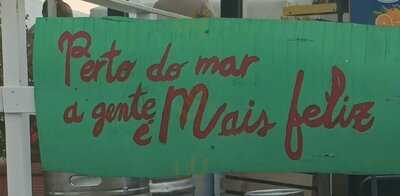 Perto do mar
a gente é Mais feliz